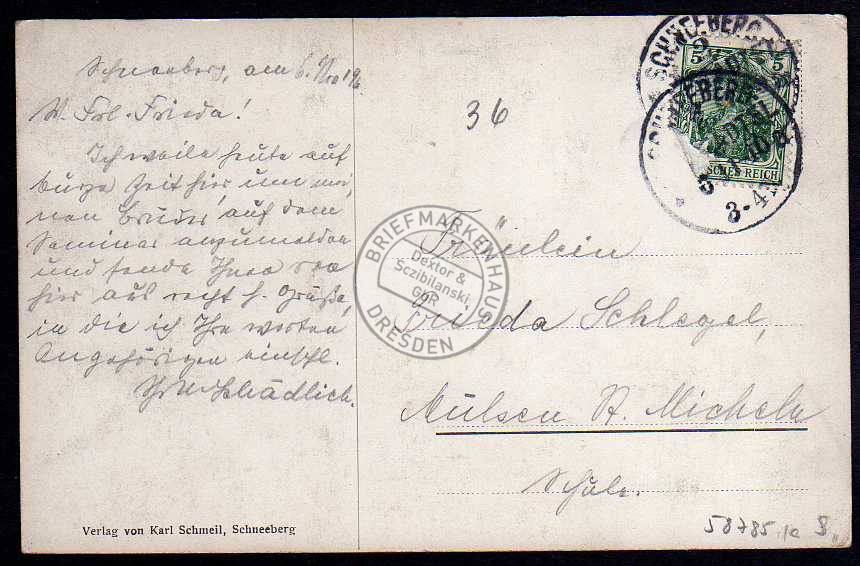 Schneeberg, am 6. Nov 19
W. Frl. Frieda!
Ich weile heute auf
kurze Zeit hier, um mei-
nen Bruder auf dem
Seminar anzumelden
und sende Ihnen von
hier aus recht h. Grüße,
in die ich Ihre werten
Angehörigen einschl.
Schädlich.
36
Fräulein
Frieda Schlegel,
Mülsen St. Micheln
Schule.
SCHNEEBERG
SCHNEEBERG
3-4
5
5
DEUTSCHES REICH
BRIEFMARKENHAUS
Dextor &
Sczibilanski
GbR
DRESDEN
Verlag von Karl Schmeil, Schneeberg
58785